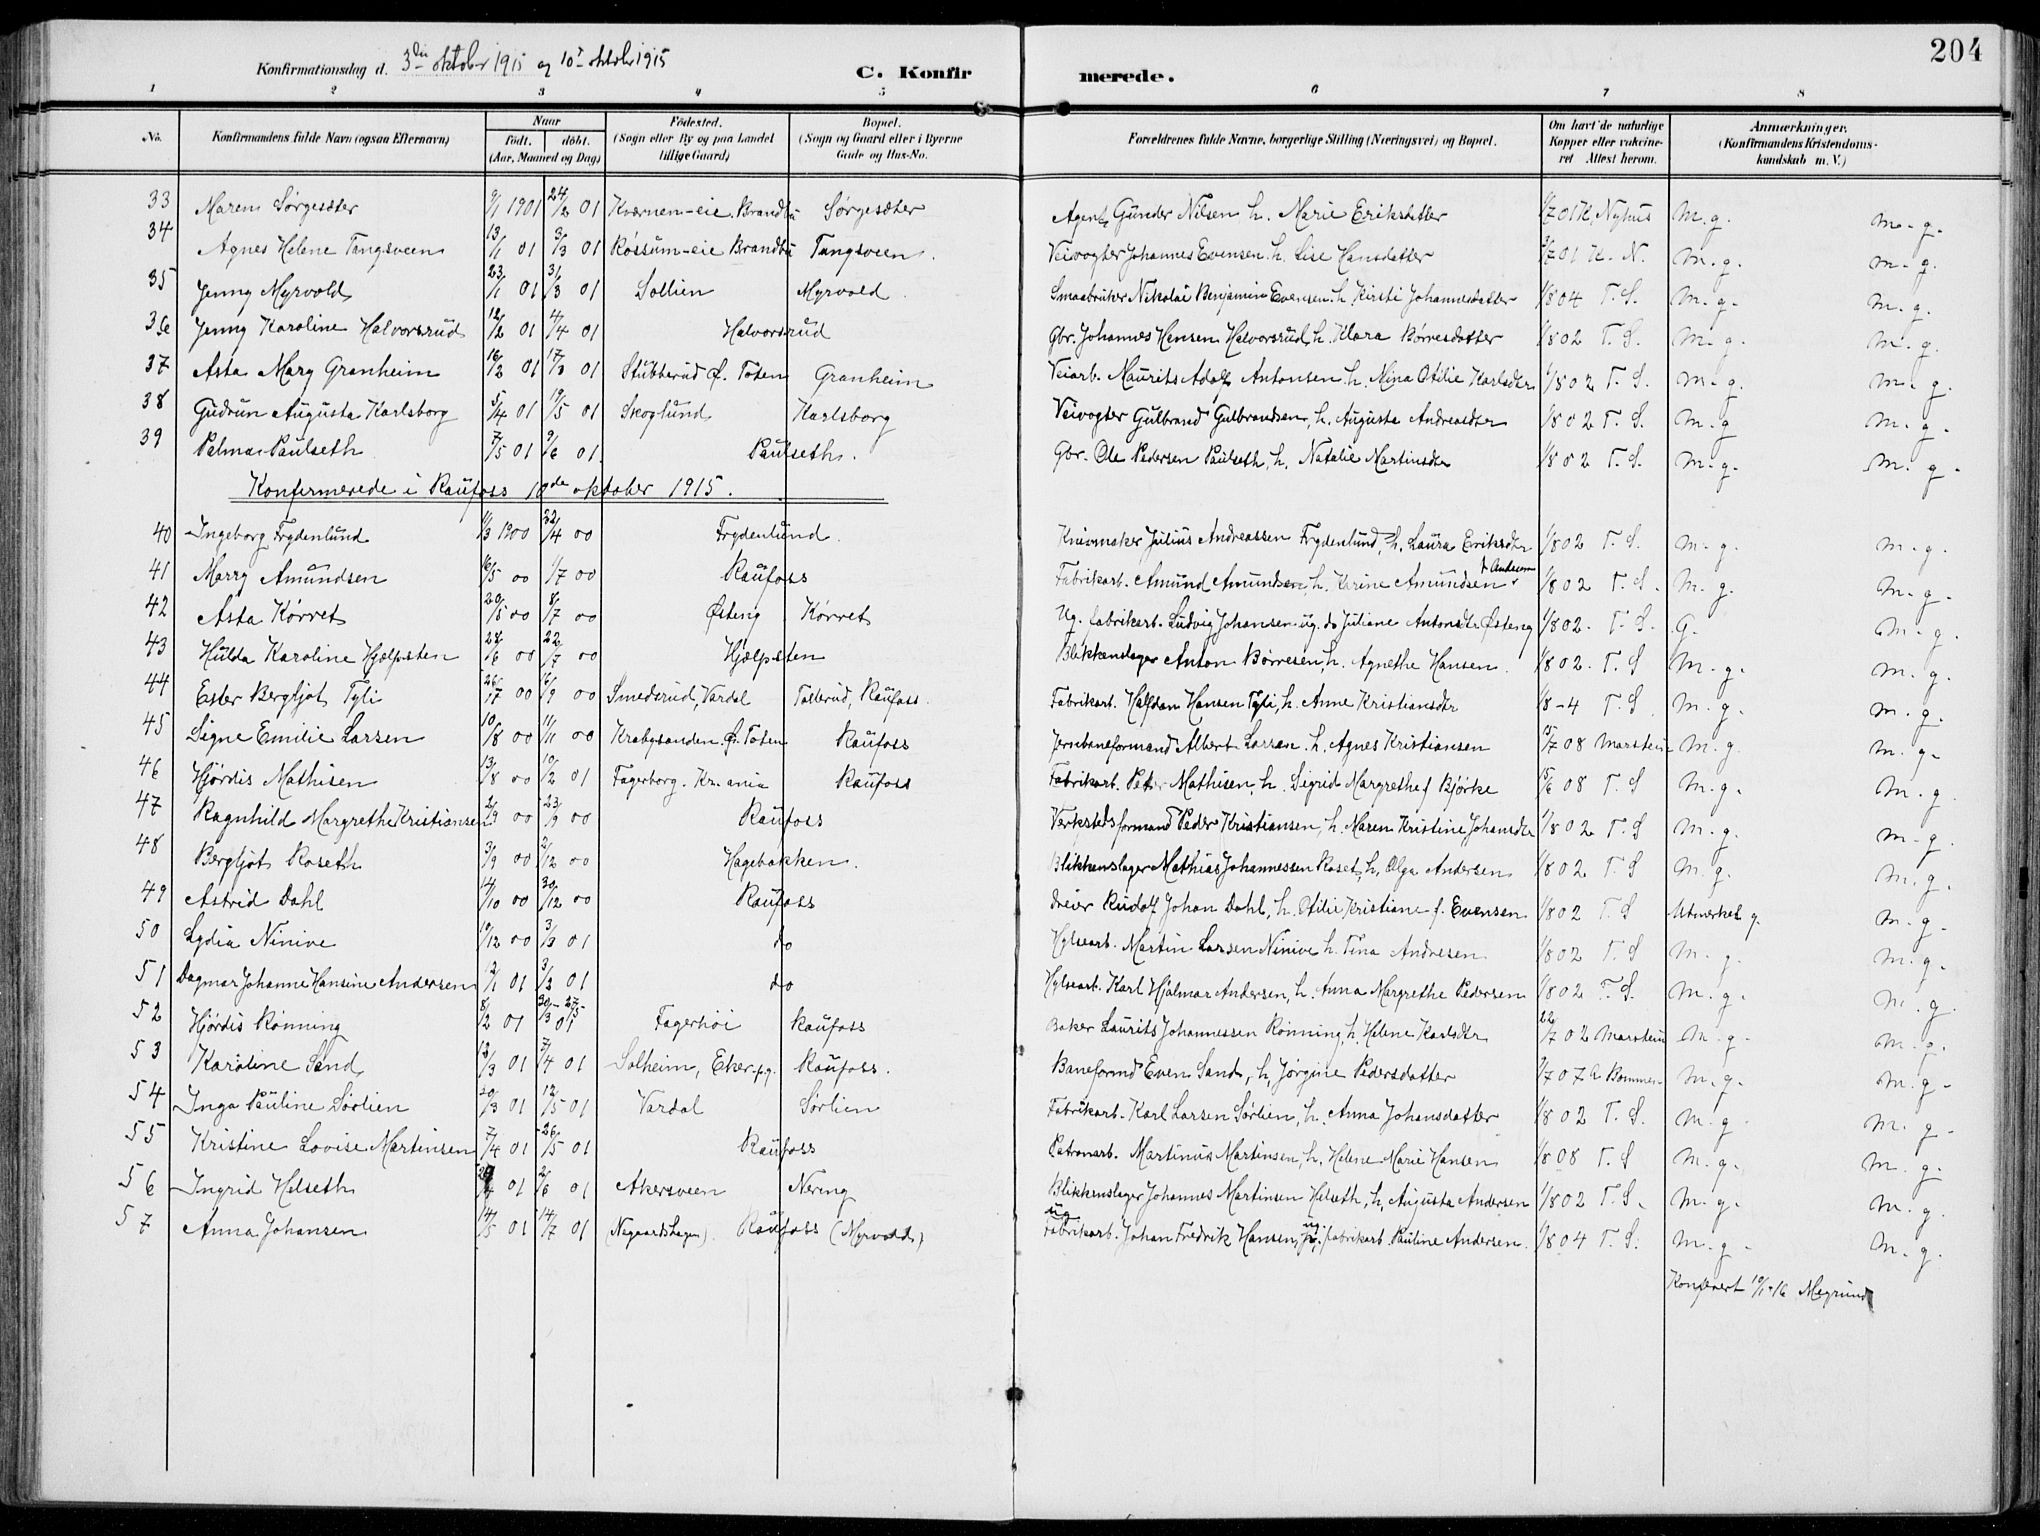 204
Konfirmationsdag d. 3die oktober 1915 og 10de oktober 1915
C. Konfirmerede.
1 2 3 4 5 6 7 8
No. Konfirmandens fulde Navn (ogsaa Efternavn) Naar født. døbt. (Aar, Maaned og Dag) Fødested. (Sogn eller By og paa Landet tillige Gaard) Bopæl. (Sogn og Gaard eller i Byerne Gade og Hus-No. Forældrenes fulde Navne, borgerlige Stilling (Næringsvei) og Bopæl. Om havt de naturlige Kopper eller vakcineret Attest herom. Anmærkninger. (Konfirmandens Kristendomskundskab m. V.)
33 Maren Sørgesæter 9/1 1901 24/2 01 Kværnen-eie, Brandbu Sørgesæter Agent Gunder Nilsen h. Marie Eriksdatter 7 01 K. Nyhus M. g. m. g.
34 Agnes Helene Tangsveen 13/1 01 3/3 01 Røssum-eie Brandbu Tangsveen. Veivogter Johannes Evensen h. Lise Hansdatter 7 01 K. N. M. g. m. g.
35 Jenny Myrvold 23/1 01 31/3 01 Sollien Myrvold Smaabruker Nikolai Benjamin Evensen h. Kirsti Johannesdatter 1/8 04 T. S. M. g. m. g.
36 Jenny Karoline Halvorsrud 12/2 01 4/4 01 Halvorsrud Gbr. Johannes Hansen Halvorsrud, h. Klara Børresdatter 1/8 02 T. S. M. g. m. g.
37 Asta Mary Granheim 16/2 01 17/3 01 Stubberud Ø. Toten Granheim Veiarb. Maurits Adolf Antonsen h. Nina Otilie Karlsdtr 1/8 02 T. S. M. g. m. g.
38 Gudrun Augusta Karlsborg 5/4 01 19/5 01 Skoglund Karlsborg Veivogter Gulbrand Gulbrandsen, h. Augusta Andreasdtr 1/8 02 T. S. M. g m. g.
39 Palma Paulseth 7/5 01 9/6 01. Paulseth. Gbr. Ole Pedersen Paulseth, h. Natalie Martinsdtr 1/8 02 T. S. M. g. m. g.
Konfermerede i Raufoss 10de oktober 1915.
40 Ingeborg Frydenlund 11/3 1900 22/4 00 Frydenlund. Knivmaker Julius Andreassen Frydenlund, h. Laura Eriksdtr 1/8 02 T. S. M. g. m. g.
41 Marry Amundsen 16/5 00 1/7 00 Raufoss Fabrikarb. Amund Amundsen, h. Karine Amundsen f. Andersen 1/8 02 T. S. M. g. m. g.
42 Asta Kørret 20/5 00 8/7 00 Østeng Kørret Ug. fabrikarb. Ludvig Johansen ug. do Juliane Antonsdtr. Østeng 1/8 02. T. S. G. m. g.
43 Hulda Karoline Hjælpsten 28/6 00 22/7 00 Hjælpsten Blikkenslager Anton Børresen, h. Agnethe Hansen. 1/8 02. T. S M. g. m. g.
44 Ester Bergljot Tyli 26/7 00 16/9 00 Smedsrud, Vardal Tollerud, Raufoss. Fabrikarb. Halfdan Hansen Tyli, h. Anne Kristiansdtr 1/8 -4 T. S. M. g. m. g.
45 Signe Emilie Larsen 10/8 00 11/11 00 Krabysanden. Ø. Toten Raufoss Jernbaneformand Albert Larsen h. Agnes Kristiansen 15/7 08 Marstein M. g m. g.
46 Hjørdis Mathisen 13/8 00 10/2 01 Fagerborg. Kr. ania Raufoss Fabrikarb. Peter Mathisen, h. Sigrid Margrethe f Bjørke 15/6 08 T. S M. g. m. g.
47 Ragnhild Margrethe Kristiansen 2/9 00 23/9 00 Raufoss Verkstedsformand Peder Kristiansen, h. Maren Kristine Johansdtr 1/8 02 T. S M. g. m. g.
48 Bergljot Roseth 3/9 00 2/12 00 Hagebakken. Blikkenslager Mathias Johannessen Roset, h. Olga Andersen 1/8 02 T. S M. g. m. g.
49 Astrid Dahl 14/10 00 30/12 00 Raufoss Dreier Rudolf Johan Dahl, h. Otilie Kristiane f. Evensen 1/8 02 T. S Utmerket g. m. g.
50 Lydia Ninive 10/12 00 3/3 01 do Hylsearb. Martin Larsen Ninive h. Tina Andresen 1/8 02 T. S M. g. m. g.
51 Dagmar Johanne Hansine Andersen 2/1 01 3/3 01 do Hylsearb. Karl Hjalmar Andersen, h. Anna Margrethe Pedersen 1/8 02 T. S. M. g. m. g.
52 Hjørdis Rønning 8/2 01 30/3 - 27/5 01 Fagerhøi Raufoss Baker Laurits Johannessen Rønning, h. Helene Karlsdtr 22/7 02 Marstein M. g. m. g.
53 Karoline Sand 13/3 01 7/4 01 Solheim, Eker pg. Raufoss. Baneformd Even Sand, h. Jørgine Pedersdatter 7 07 M. g. m. g.
54 Inga Pauline Sørlien 20/3 01 12/5 01 Vardal Sørlien Fabrikarb. Karl Larsen Sørlien, h. Anna Johansdatter 1/8 02 T. S. M. g. m. g.
55 Kristine Lovise Martinsen 7/4 01 26/5 01 Raufoss Patronarb. Martinus Martinsen, h. Helene Marie Hansen 1/8 08 T. S M. g. m. g.
56 Ingrid Helseth 4 01 2/6 01 Akersveen Nering Blikkenslager Johannes Martinsen Helseth, h. Augusta Andersen 1/8 02 T. S. M. g. m. g.
57 Anna Johansen 14/5 01 14/7 01 (Negaardshagen). Raufoss (Myrvold) ug Fabrikarb. Johan Fredrik Hansen, ug. fabrikarb. Pauline Andersen. 1/8 04 T. S. M. g. m. g.
Konferert 10/1-16